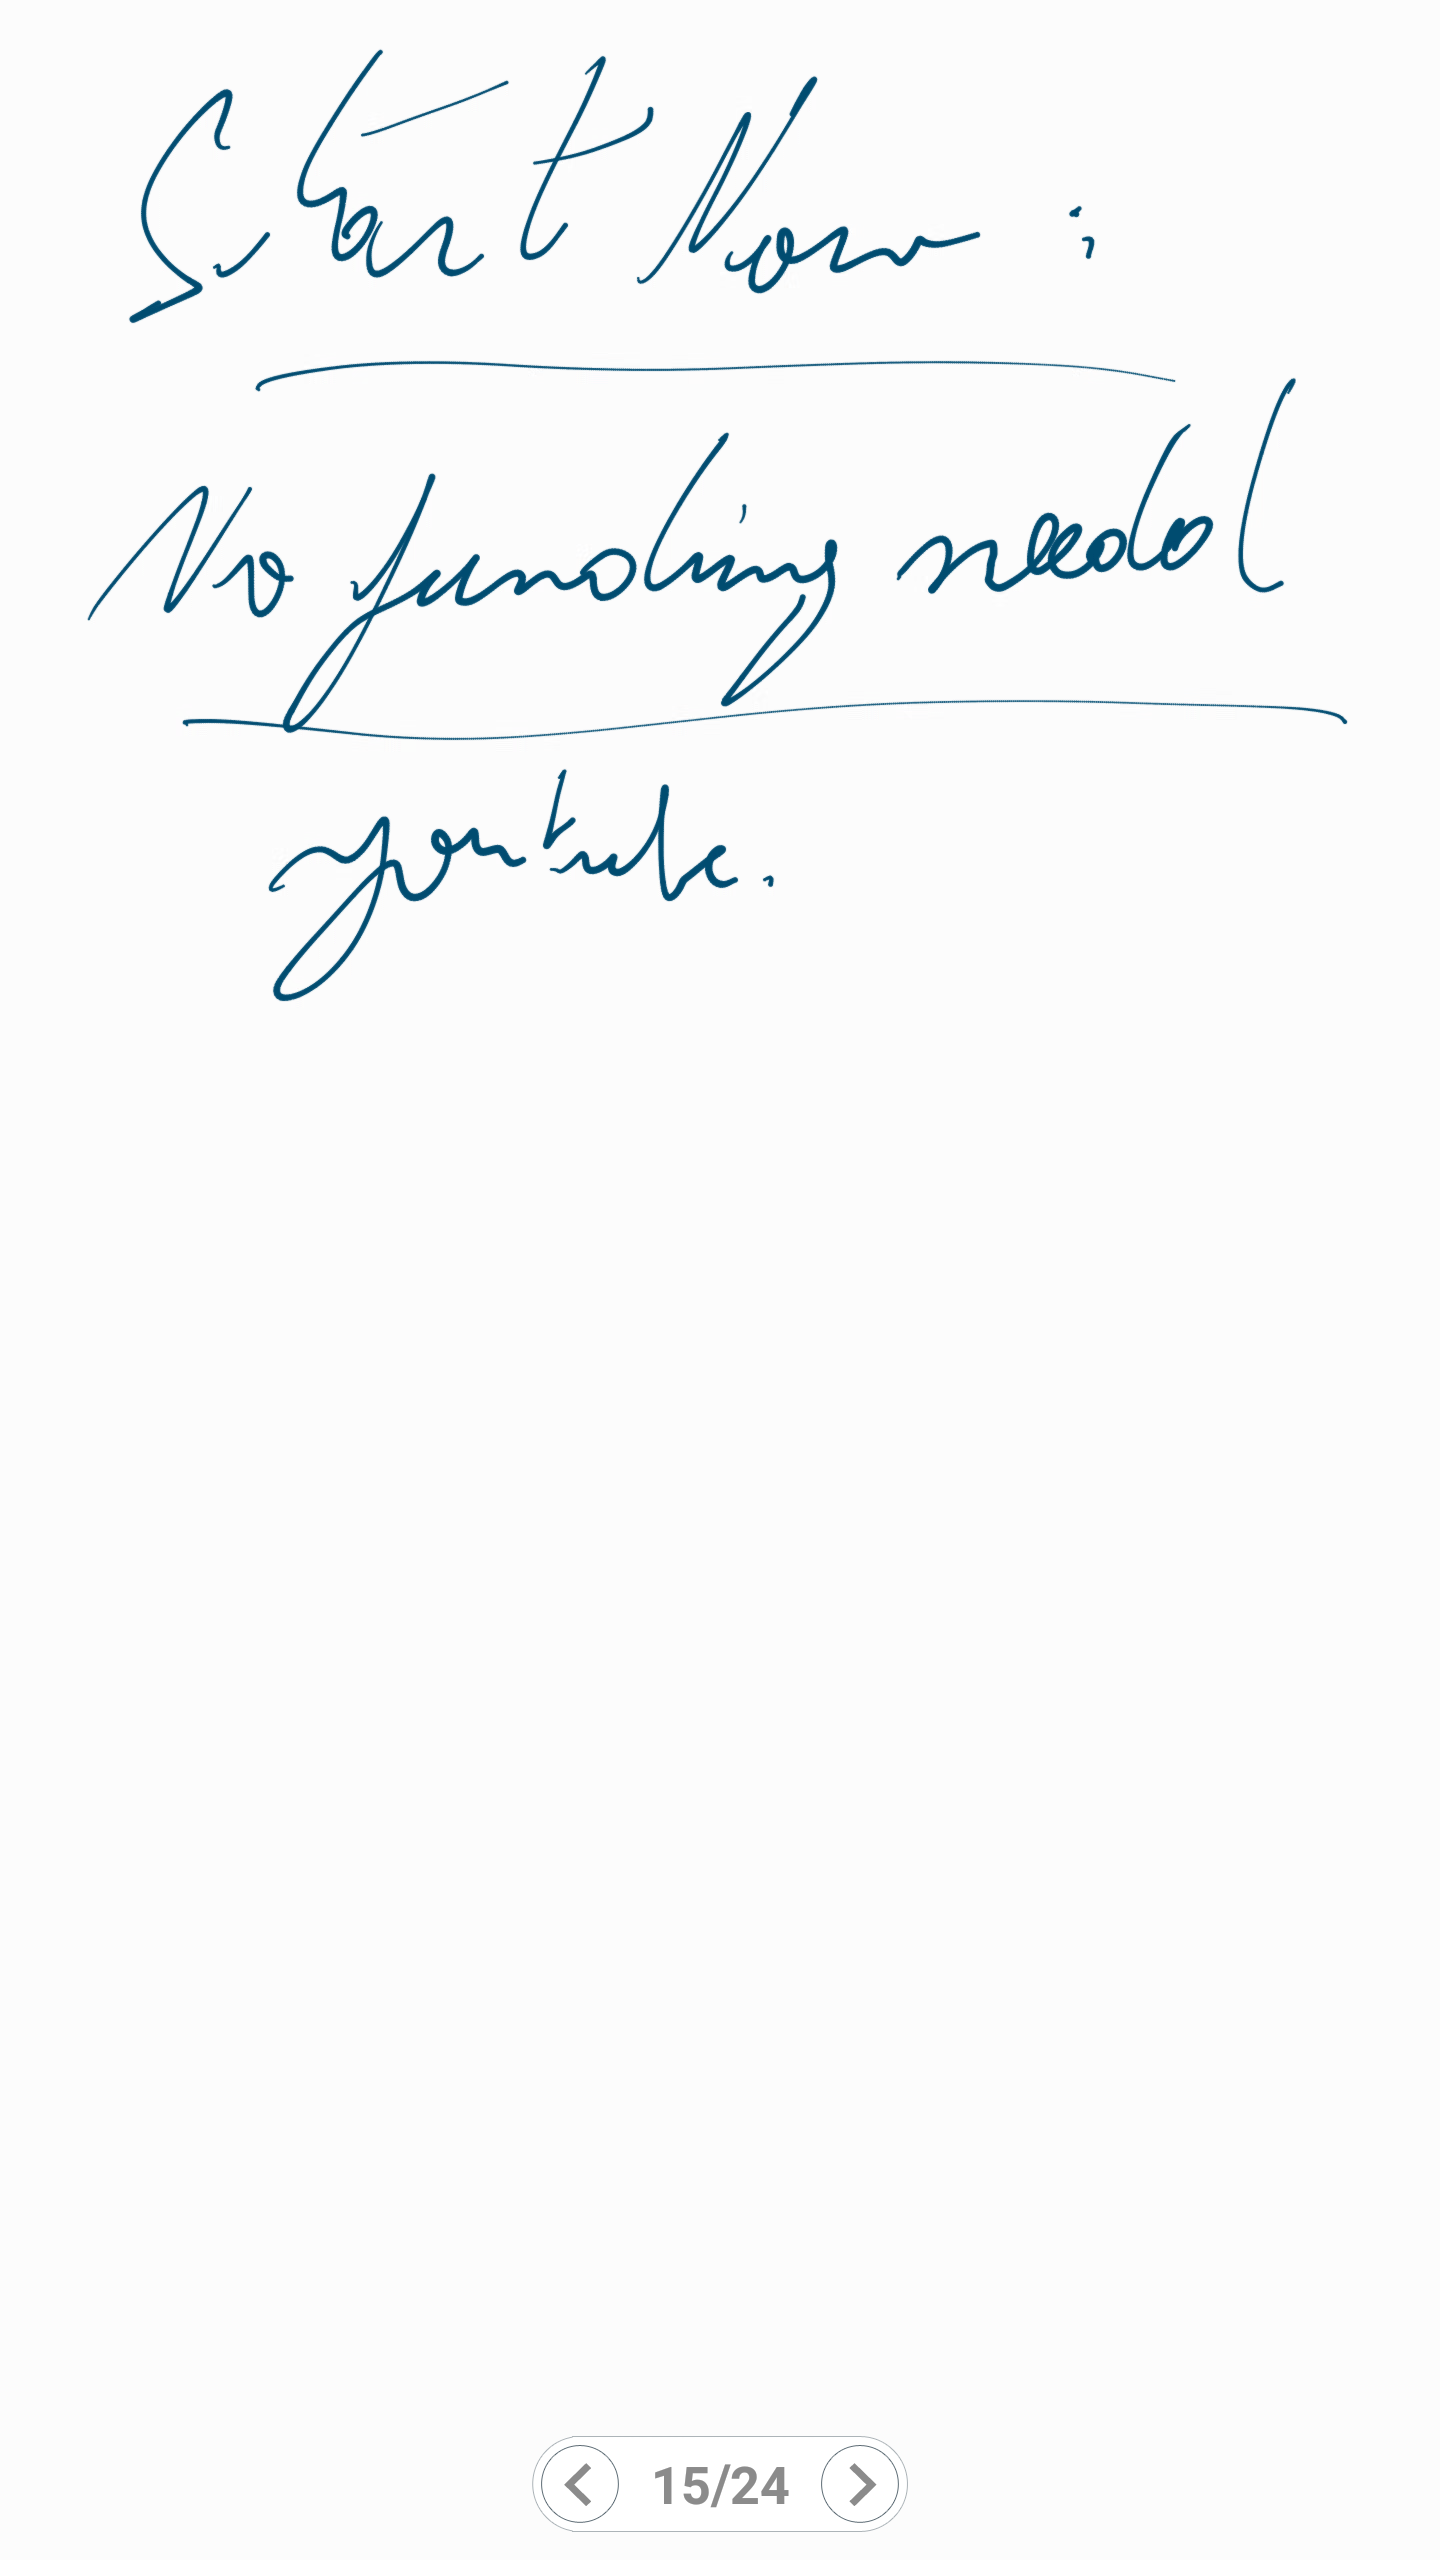 Start Now :
No funding needed
youtube.
15/24